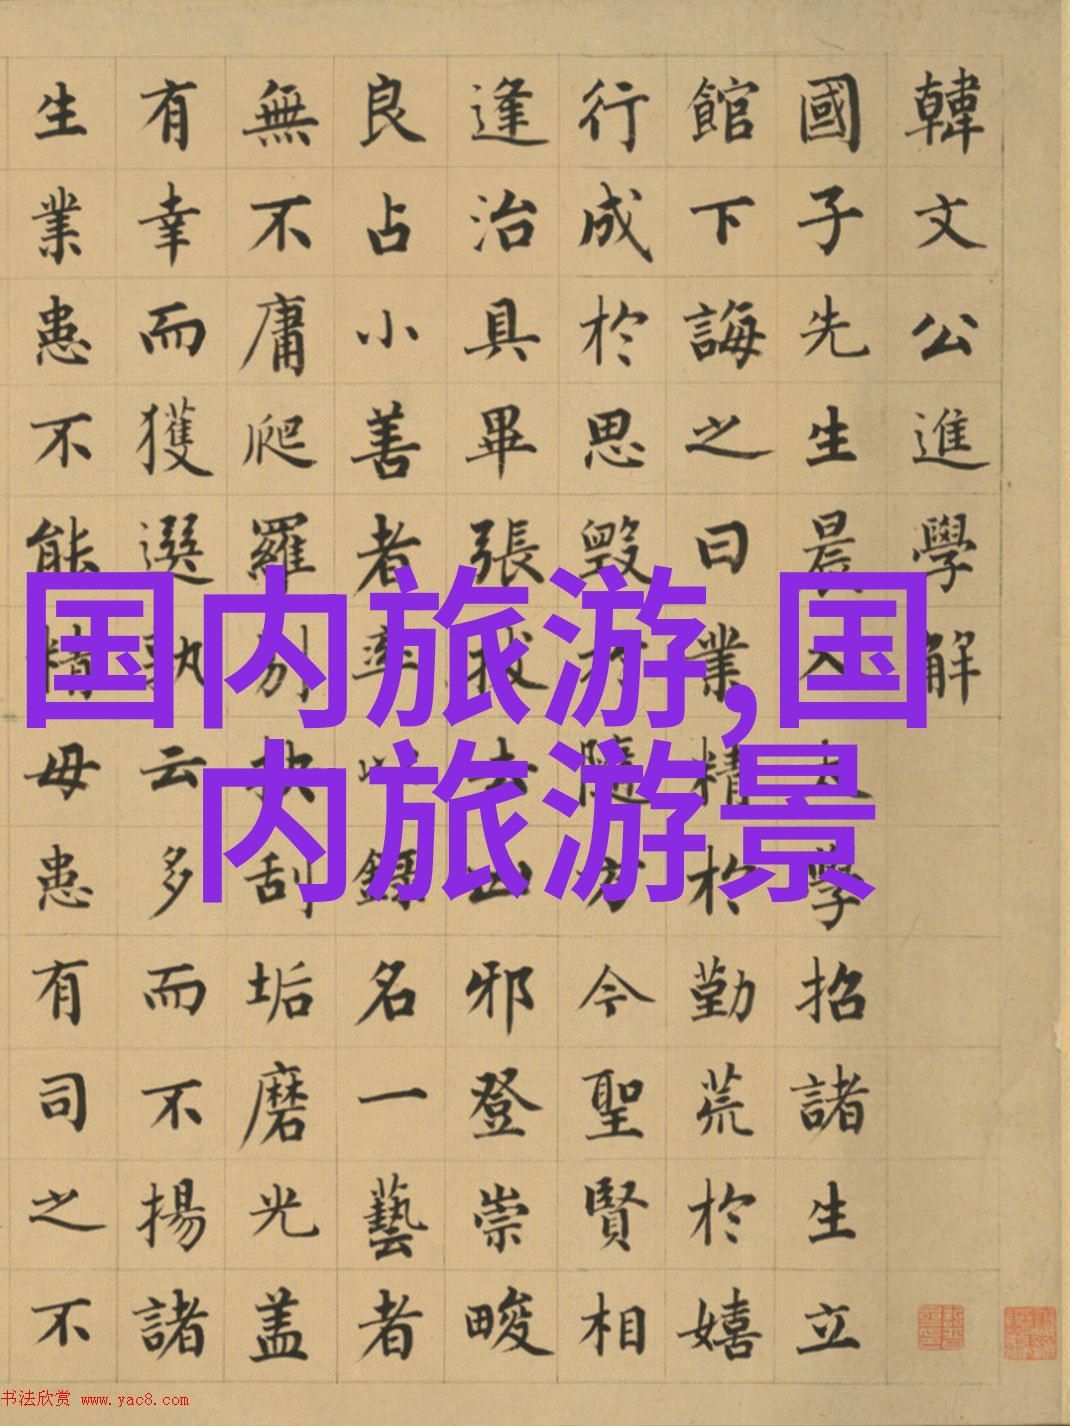 韓文公進學解
國子先生晨入太學招諸生立
館下誨之曰業精於勤荒於嬉
行成於思毀於隨方今聖賢相
逢治具畢張拔去凶邪登崇畯
良占小善者率以錄名一藝者
無不庸爬羅剔抉刮垢磨光盖
有幸而獲選孰云多而不揚諸
生業患不能精毋患有司之不
国内旅游,国
内旅游景
书法欣赏 www.yac8.com